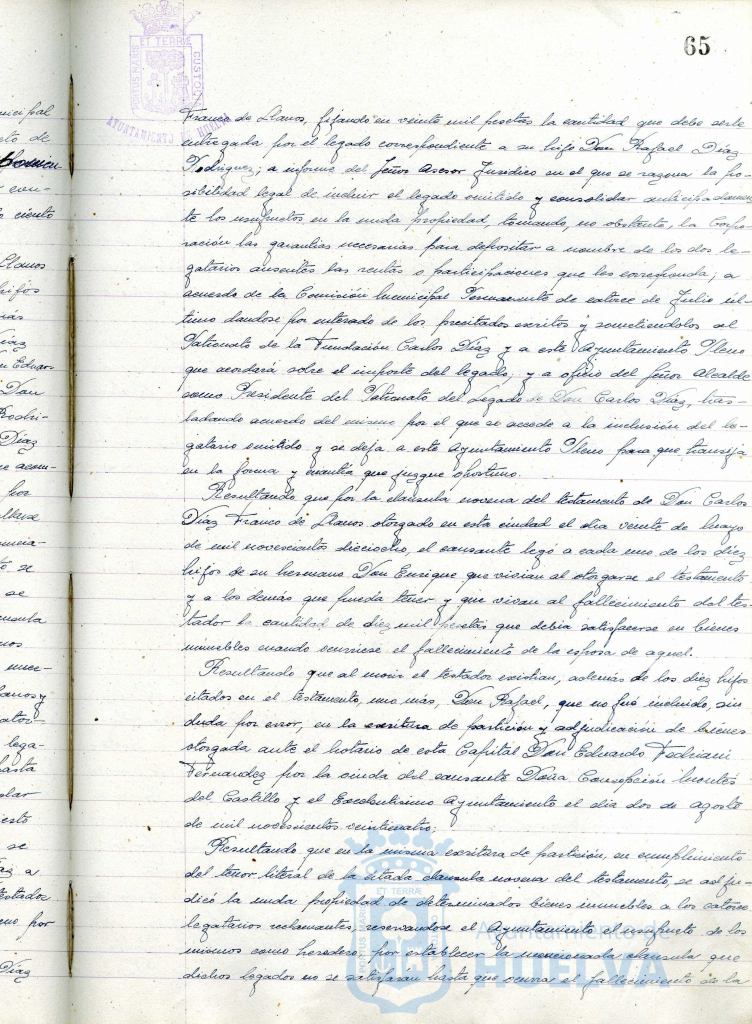 65
PORTUS MARIS ET TERRAE CUSTODIA
AYUNTAMIENTO DE HUELVA
Franco de Llanos, fijando en veinte mil pesetas la cantidad que debe serle
entregada por el legado correspondiente a su hijo Don Rafael Díaz
Rodríguez; a informe del Señor Asesor Jurídico en el que se razona la po-
sibilidad legal de incluir el legado omitido y consolidar anticipadamen-
te los usufructos en la nuda propiedad, tomando, no obstante, la Corpo-
ración las garantías necesarias para depositar a nombre de los dos le-
gatarios ausentes las rentas o participaciones que les corresponda; a
acuerdo de la Comisión Municipal Permanente de catorce de Julio úl-
timo dandose por enterado de los precitados escritos y sometiendolos al
Patronato de la Fundación Carlos Díaz y a este Ayuntamiento Pleno
que acordará sobre el importe del legado; y a oficio del Señor Alcalde
como Presidente del Patronato del Legado de Don Carlos Díaz, tras-
ladando acuerdo del mismo por el que se accede a la inclusión del le-
gatario omitido y se deja a este Ayuntamiento Pleno para que transeja
en la forma y cuantía que juzgue oportuno.
Resultando que por la clausula novena del testamento de Don Carlos
Díaz Franco de Llanos otorgado en esta ciudad el día veinte de mayo
de mil novecientos dieciocho, el causante legó a cada uno de los diez
hijos de su hermano Don Enrique que vivian al otorgarse el testamento
y a los demás que pueda tener y que vivan al fallecimiento del tes-
tador la cantidad de diez mil pesetas que debia satisfacerse en bienes
inmuebles cuando ocurriese el fallecimiento de la esposa de aquel.
Resultando que al morir el testador existian, además de los diez hijos
citados en el testamento, uno más, Don Rafael, que no fué incluido, sin
duda por error, en la escritura de partición y adjudicación de bienes
otorgada ante el Notario de esta Capital Don Eduardo Fedriani
Fernandez por la viuda del causante Doña Concepción Montes
del Castillo y el Excelentísimo Ayuntamiento el día dos de agosto
de mil novecientos veinticuatro;
Resultando que en la misma escritura de partición, en cumplimiento
del tenor literal de la citada clausula novena del testamento, se adju-
dicó la nuda propiedad de determinados bienes inmuebles a los catorce
legatarios reclamantes, reservandose el Ayuntamiento el usufructo de los
mismos como heredero por establecer la mencionada clausula que
dichos legados no se satisfaran hasta que ocurra el fallecimiento de la
Ayuntamiento de
HUELVA